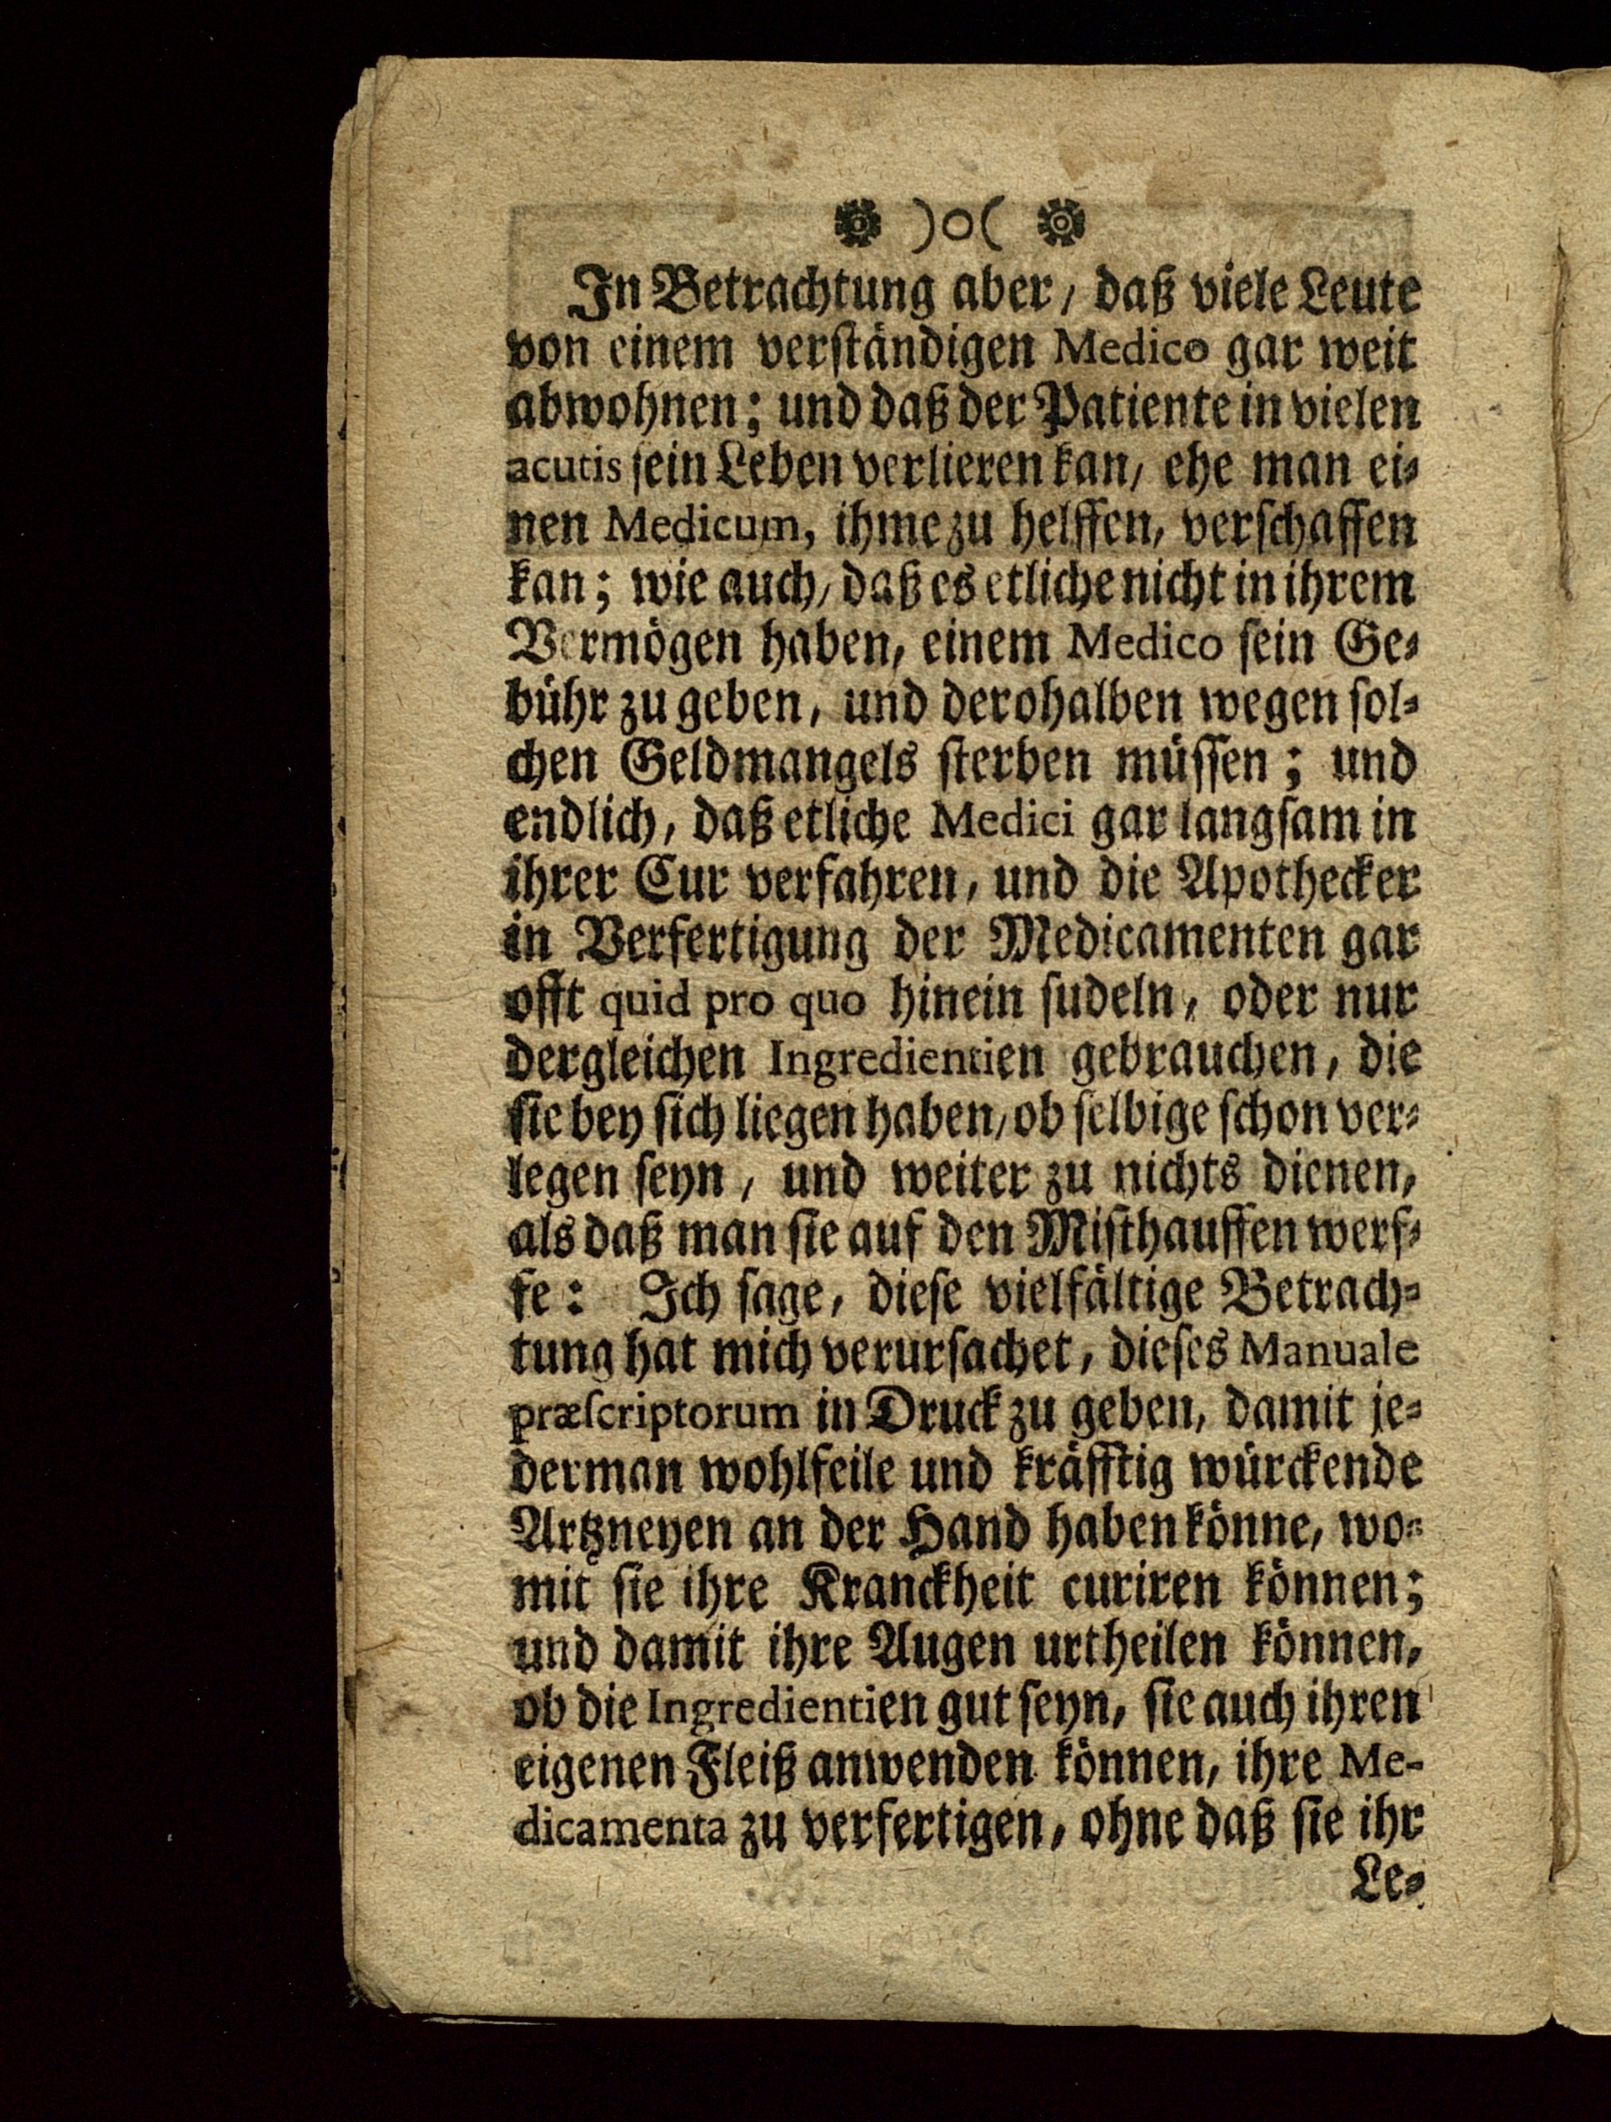 )o(
In Betrachtung aber, daß viele Leute
von einem verständigen Medico gar weit
abwohnen; und daß der Patiente in vielen
acutis sein Leben verlieren kan, ehe man ei-
nen Medicum, ihme zu helffen, verschaffen
kan; wie auch, daß es etliche nicht in ihrem
Vermögen haben, einem Medico sein Ge-
bühr zu geben, und derohalben wegen sol-
chen Geldmangels sterben müssen; und
endlich, daß etliche Medici gar langsam in
ihrer Cur verfahren, und die Apothecker
in Verfertigung der Medicamenten gar
offt quid pro quo hinein sudeln, oder nur
dergleichen Ingredientien gebrauchen, die
sie bey sich liegen haben, ob selbige schon ver-
legen seyn, und weiter zu nichts dienen,
als daß man sie auf den Misthauffen werf-
fe: Ich sage, diese vielfältige Betrach-
tung hat mich verursachet, dieses Manuale
præscriptorum in Druck zu geben, damit je-
derman wohlfeile und kräfftig würckende
Artzneyen an der Hand haben könne, wo-
mit sie ihre Kranckheit curiren können;
und damit ihre Augen urtheilen können,
ob die Ingredientien gut seyn, sie auch ihren
eigenen Fleiß anwenden können, ihre Me-
dicamenta zu verfertigen, ohne daß sie ihr
Le-